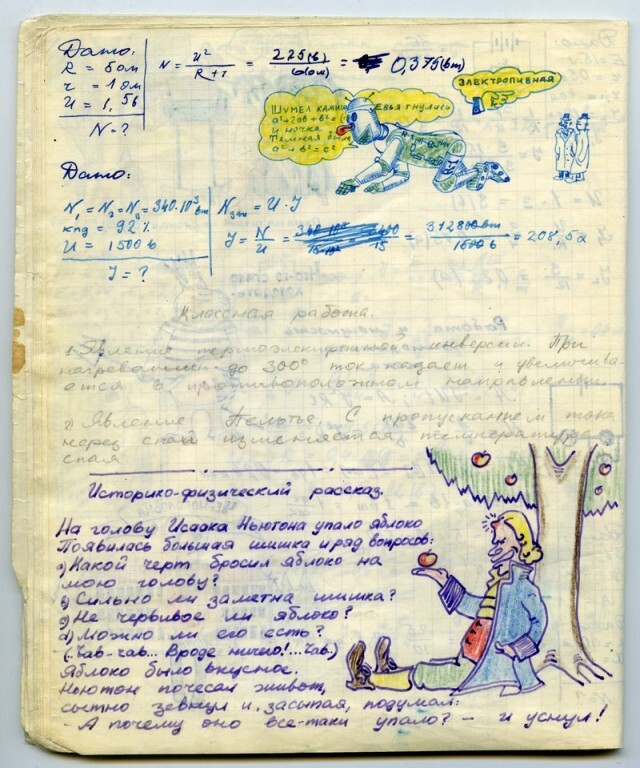 Дано:
R = 5 ом
r = 1 ом
U = 1,5в
N = ?
N = U² / R + r = 2,25(в) / 6(ом) = 0,375(вт)
ЭЛЕКТРОПИВНАЯ
ШУМЕЛ КАМЫШ ДЕРЕВЬЯ ГНУЛИСЬ
a²+2ab+b²=
И НОЧКА
ТЕМНАЯ БЫЛА
a²+b²=c²
Дано:
N₁ = N₂ = N₃ = 340·10³ вт
кпд = 92%
U = 1500 в
J = ?
N = U·J
J = N / U = 312800 вт / 1500 в = 208,5 а
Классная работа.
1) Явление термоэлектрической инверсии. При
нагревании до 300° ток падает и увеличива-
ется в противоположном направлении.
2) Явление Пельтье. С пропусканием тока
через спай изменяется температура
спая
Историко-физический рассказ.
На голову Исаака Ньютона упало яблоко
Появилась большая шишка и ряд вопросов:
а) Какой черт бросил яблоко на
мою голову?
б) Сильно ли заметна шишка?
в) Не червивое ли яблоко?
г) Можно ли его есть?
(..Чав-чав... Вроде ничего!...Чав.)
Яблоко было вкусное.
Ньютон почесал живот,
сытно зевнул и, засыпая, подумал:
- А почему оно все-таки упало? - и уснул!